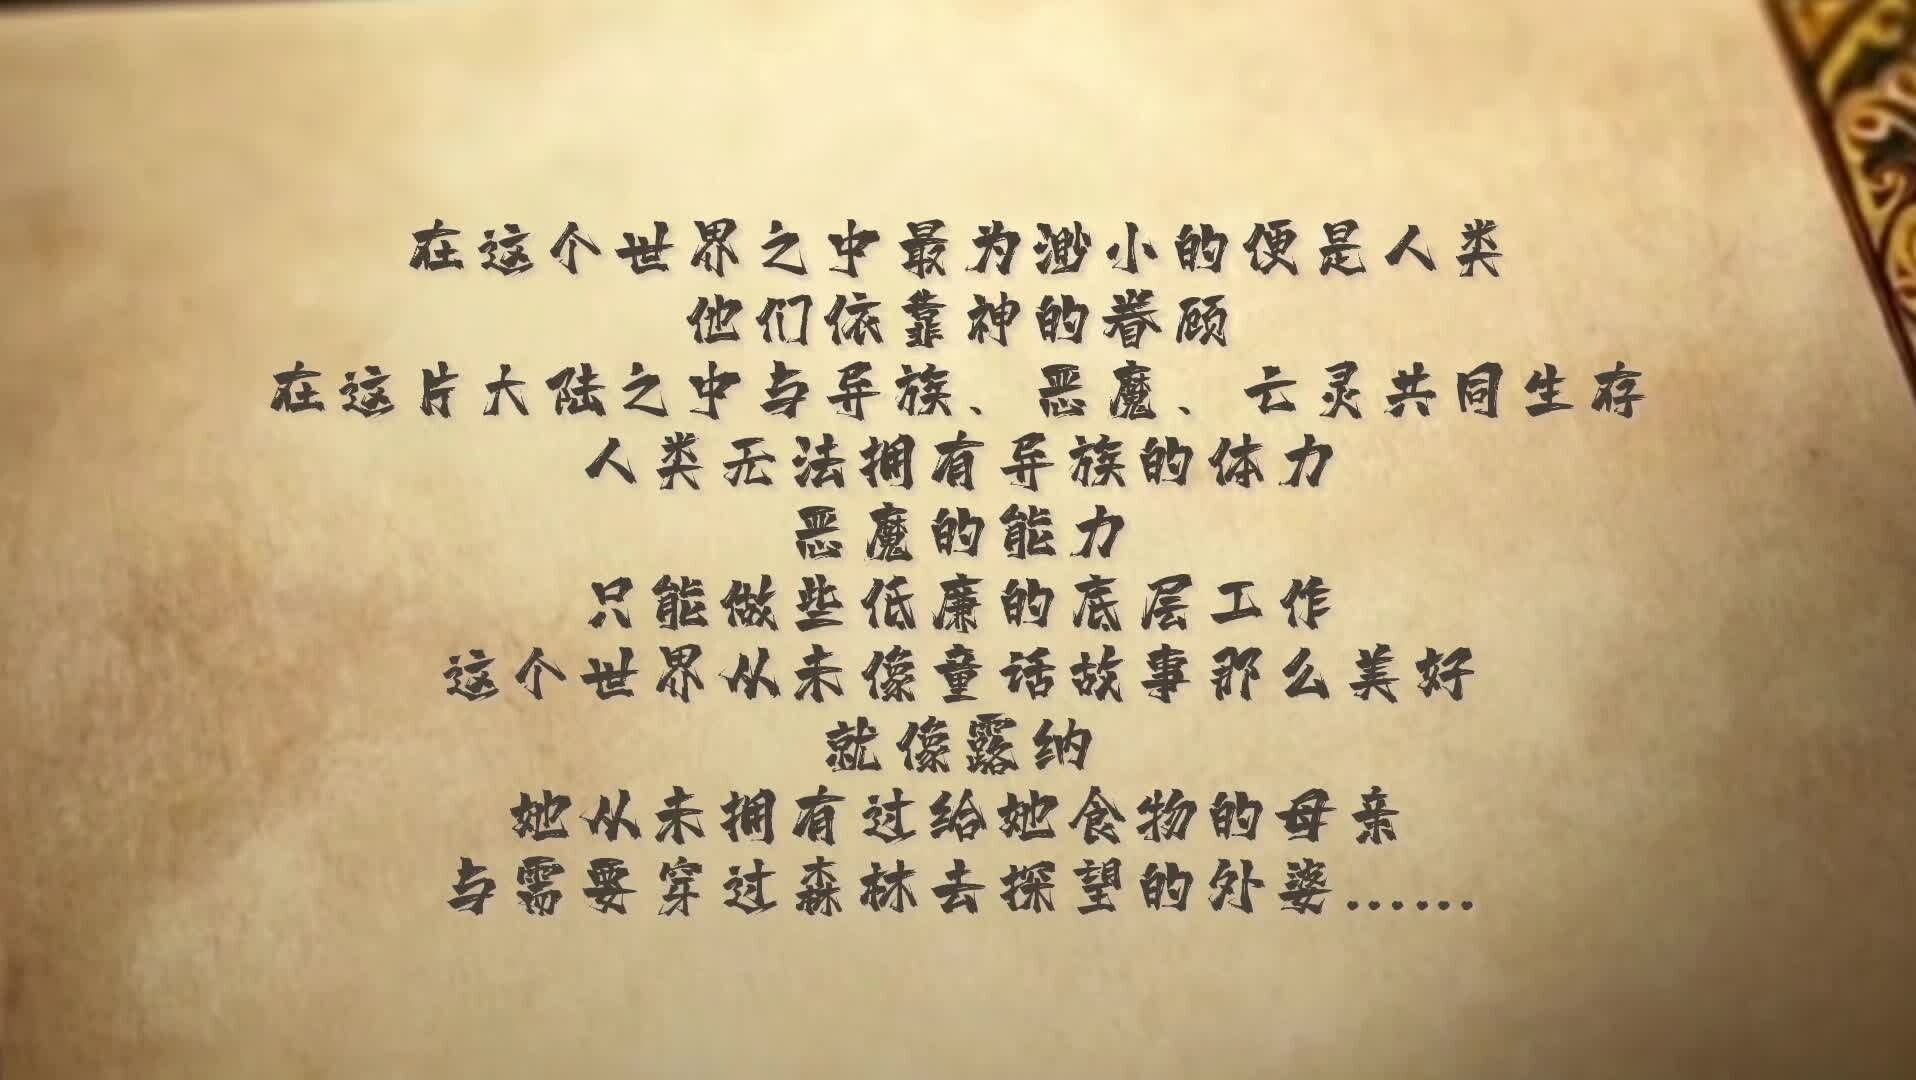 在这个世界之中最为渺小的便是人类
他们依靠神的眷顾
在这片大陆之中与异族、恶魔、亡灵共同生存
人类无法拥有异族的体力
恶魔的能力
只能做些低廉的底层工作
这个世界从未像童话故事那么美好
就像露纳
她从未拥有过给她食物的母亲
与需要穿过森林去探望的外婆......